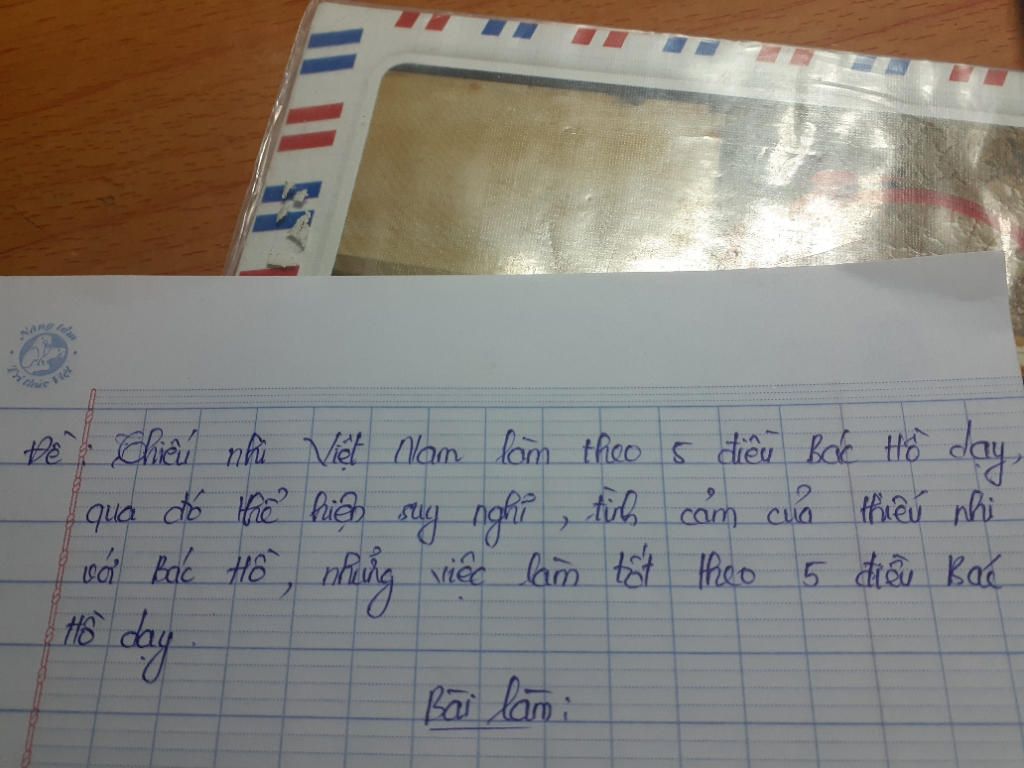 Nâng tầm
Tri thức Việt
Đề: Thiếu nhi Việt Nam làm theo 5 điều Bác Hồ dạy,
qua đó thể hiện suy nghĩ, tình cảm của thiếu nhi
với Bác Hồ, những việc làm tốt theo 5 điều Bác
Hồ dạy.
Bài làm: